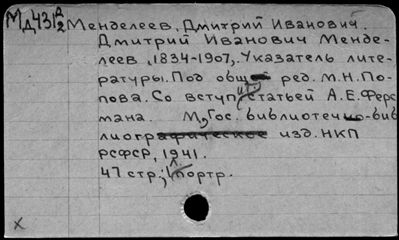 Мд431 Д2 Менделеев, Дмитрий Иванович.
Дмитрий Иванович Менде-
леев, 1834-1907. Указатель лите-
ратуры. Под общ. ред. М.Н.По-
пова. Со вступит. статьей А.Е.Ферс
мана. М., Гос. библиотечно-биб
лиографическое изд. НКП
РСФСР, 1941.
47 стр.; 1 л. портр.
x